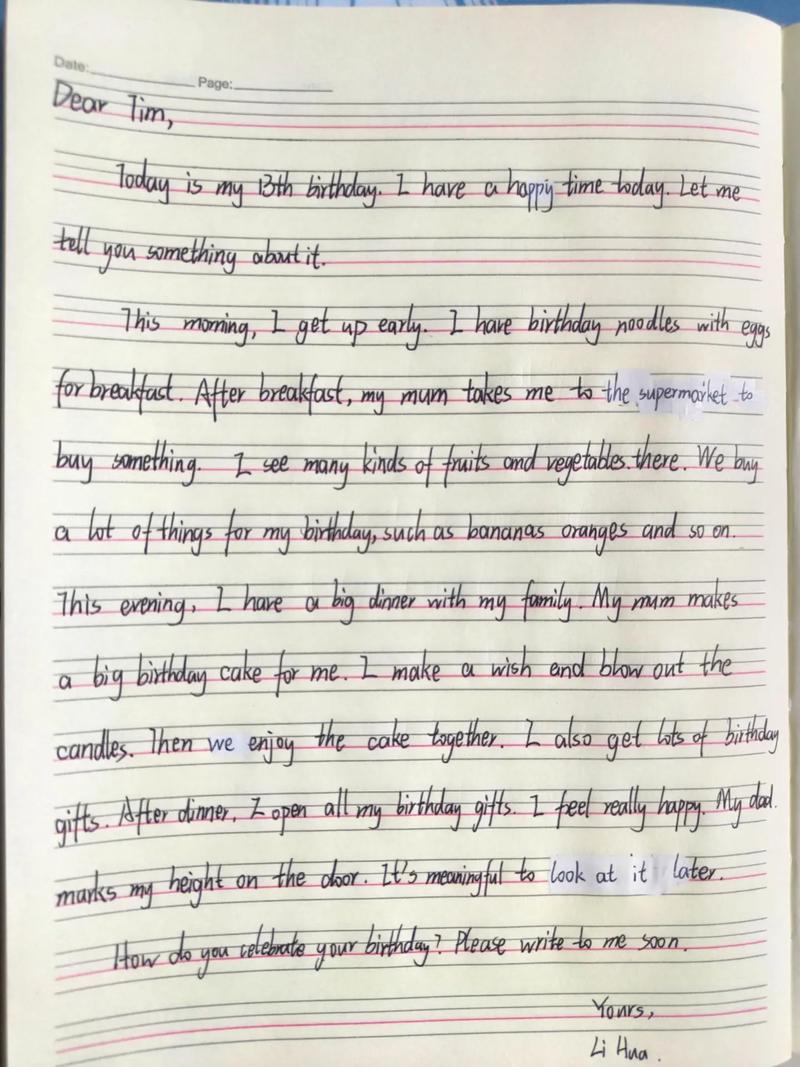 Date:
Page:
Dear Tim,
Today is my 13th birthday. I have a happy time today. Let me
tell you something about it.
This morning, I get up early. I have birthday noodles with eggs
for breakfast. After breakfast, my mum takes me to the supermarket to
buy something. I see many kinds of fruits and vegetables there. We buy
a lot of things for my birthday, such as bananas oranges and so on.
This evening, I have a big dinner with my family. My mum makes
a big birthday cake for me. I make a wish and blow out the
candles. Then we enjoy the cake together. I also get lots of birthday
gifts. After dinner, I open all my birthday gifts. I feel really happy. My dad
marks my height on the door. It's meaningful to look at it later.
How do you celebrate your birthday? Please write to me soon.
Yours,
Li Hua.